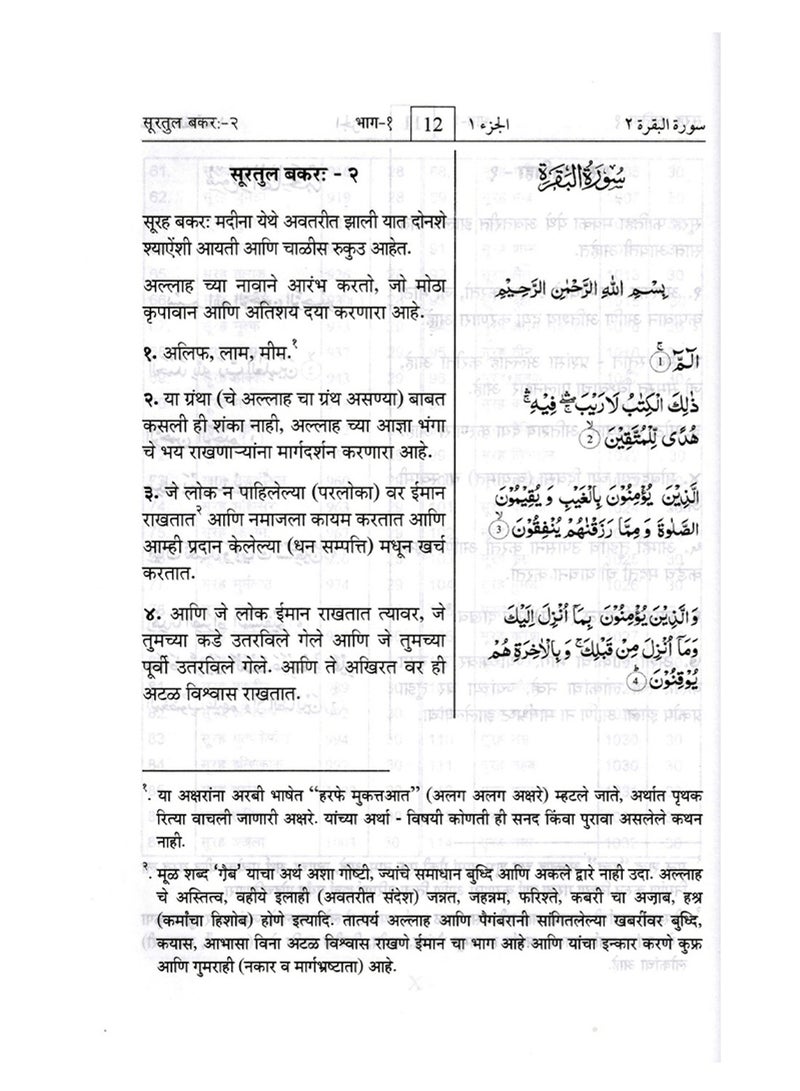 सूरतुल बकरः-२ भाग-१ 12 الجزء ١ سورة البقرة ٢
सूरतुल बकरः - २
سُوْرَةُ الْبَقَرَةِ
सूरह बकरः मदीना येथे अवतरीत झाली यात दोनशे
श्याऐंशी आयती आणि चाळीस रुकुउ आहेत.
अल्लाह च्या नावाने आरंभ करतो, जो मोठा
कृपावान आणि अतिशय दया करणारा आहे.
بِسْمِ اللهِ الرَّحْمٰنِ الرَّحِيْمِ
१. अलिफ, लाम, मीम.१
الٓمّٓ ۚ 1
२. या ग्रंथा (चे अल्लाह चा ग्रंथ असण्या) बाबत
कसली ही शंका नाही, अल्लाह च्या आज्ञा भंगा
चे भय राखणाऱ्यांना मार्गदर्शन करणारा आहे.
ذٰلِكَ الْكِتٰبُ لَا رَيْبَ ۛۖ فِيْهِ ۛۚ
هُدًى لِّلْمُتَّقِيْنَ ۙ 2
३. जे लोक न पाहिलेल्या (परलोका) वर ईमान
राखतात२ आणि नमाजला कायम करतात आणि
आम्ही प्रदान केलेल्या (धन सम्पत्ति) मधून खर्च
करतात.
الَّذِيْنَ يُؤْمِنُوْنَ بِالْغَيْبِ وَيُقِيْمُوْنَ
الصَّلٰوةَ وَمِمَّا رَزَقْنٰهُمْ يُنْفِقُوْنَ ۙ 3
४. आणि जे लोक ईमान राखतात त्यावर, जे
तुमच्या कडे उतरविले गेले आणि जे तुमच्या
पूर्वी उतरविले गेले. आणि ते अखिरत वर ही
अटळ विश्वास राखतात.
وَالَّذِيْنَ يُؤْمِنُوْنَ بِمَآ اُنْزِلَ اِلَيْكَ
وَمَآ اُنْزِلَ مِنْ قَبْلِكَ ۚ وَبِالْاٰخِرَةِ هُمْ
يُوْقِنُوْنَ ۗ 4
१. या अक्षरांना अरबी भाषेत “हरफे मुकत्तआत” (अलग अलग अक्षरे) म्हटले जाते, अर्थात पृथक
रित्या वाचली जाणारी अक्षरे. यांच्या अर्था - विषयी कोणती ही सनद किंवा पुरावा असलेले कथन
नाही.
२. मूळ शब्द ‘गै़ब’ याचा अर्थ अशा गोष्टी, ज्यांचे समाधान बुध्दि आणि अकले द्वारे नाही उदा. अल्लाह
चे अस्तित्व, वहीये इलाही (अवतरीत संदेश) जन्नत, जहन्नम, फरिश्ते, कबरी चा अजा़ब, हश्र
(कर्मांचा हिशोब) होणे इत्यादि. तात्पर्य अल्लाह आणि पैगंबरानी सांगितलेल्या खबरींवर बुध्दि,
कयास, आभासा विना अटळ विश्वास राखणे ईमान चा भाग आहे आणि यांचा इन्कार करणे कुफ्र
आणि गुमराही (नकार व मार्गभ्रष्टाता) आहे.